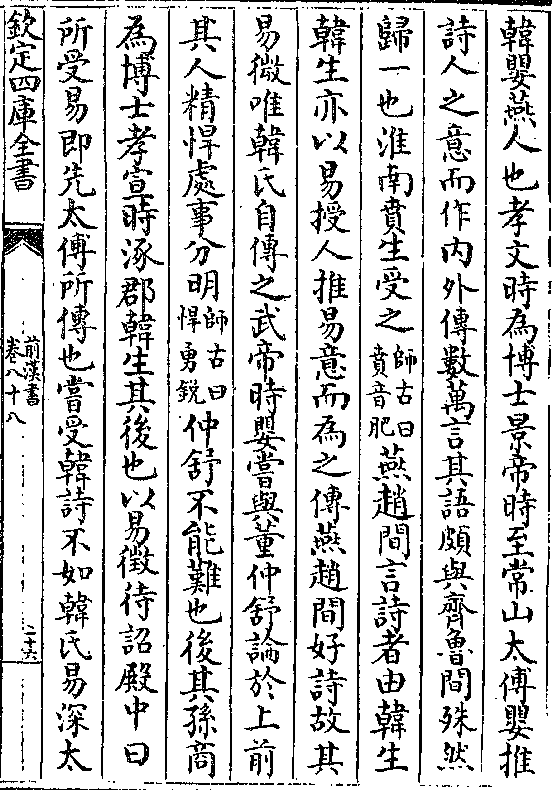 韓嬰燕人也孝文時為博士景帝時至常山太傅嬰推
詩人之意而作內外傳數萬言其語頗與齊魯間殊然
歸一也淮南賁生受之師古曰賁音肥燕趙間言詩者由韓生
韓生亦以易授人推易意而為之傳燕趙間好詩故其
易微唯韓氏自傳之武帝時嬰嘗與董仲舒論於上前
其人精悍處事分明師古曰悍勇銳仲舒不能難也後其孫商
為博士孝宣時涿郡韓生其後也以易徵待詔殿中曰
所受易即先太傅所傳也嘗受韓詩不如韓氏易深太
欽定四庫全書
前漢書
卷八十八
二十六